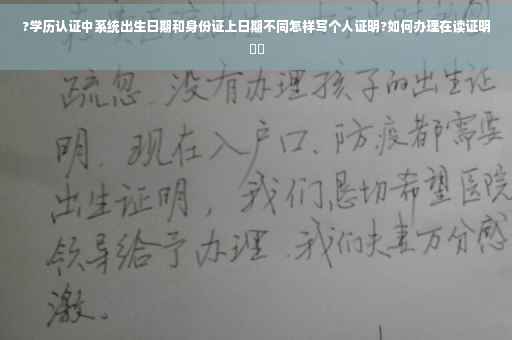 ?学历认证中系统出生日期和身份证上日期不同怎样写个人证明?如何办理在读证明
疏忽、没有办理孩子的出生证
明。现在入户口、防疫都需要
出生证明，我们恳切希望医院
领导给予办理、我们夫妻万分感
激。